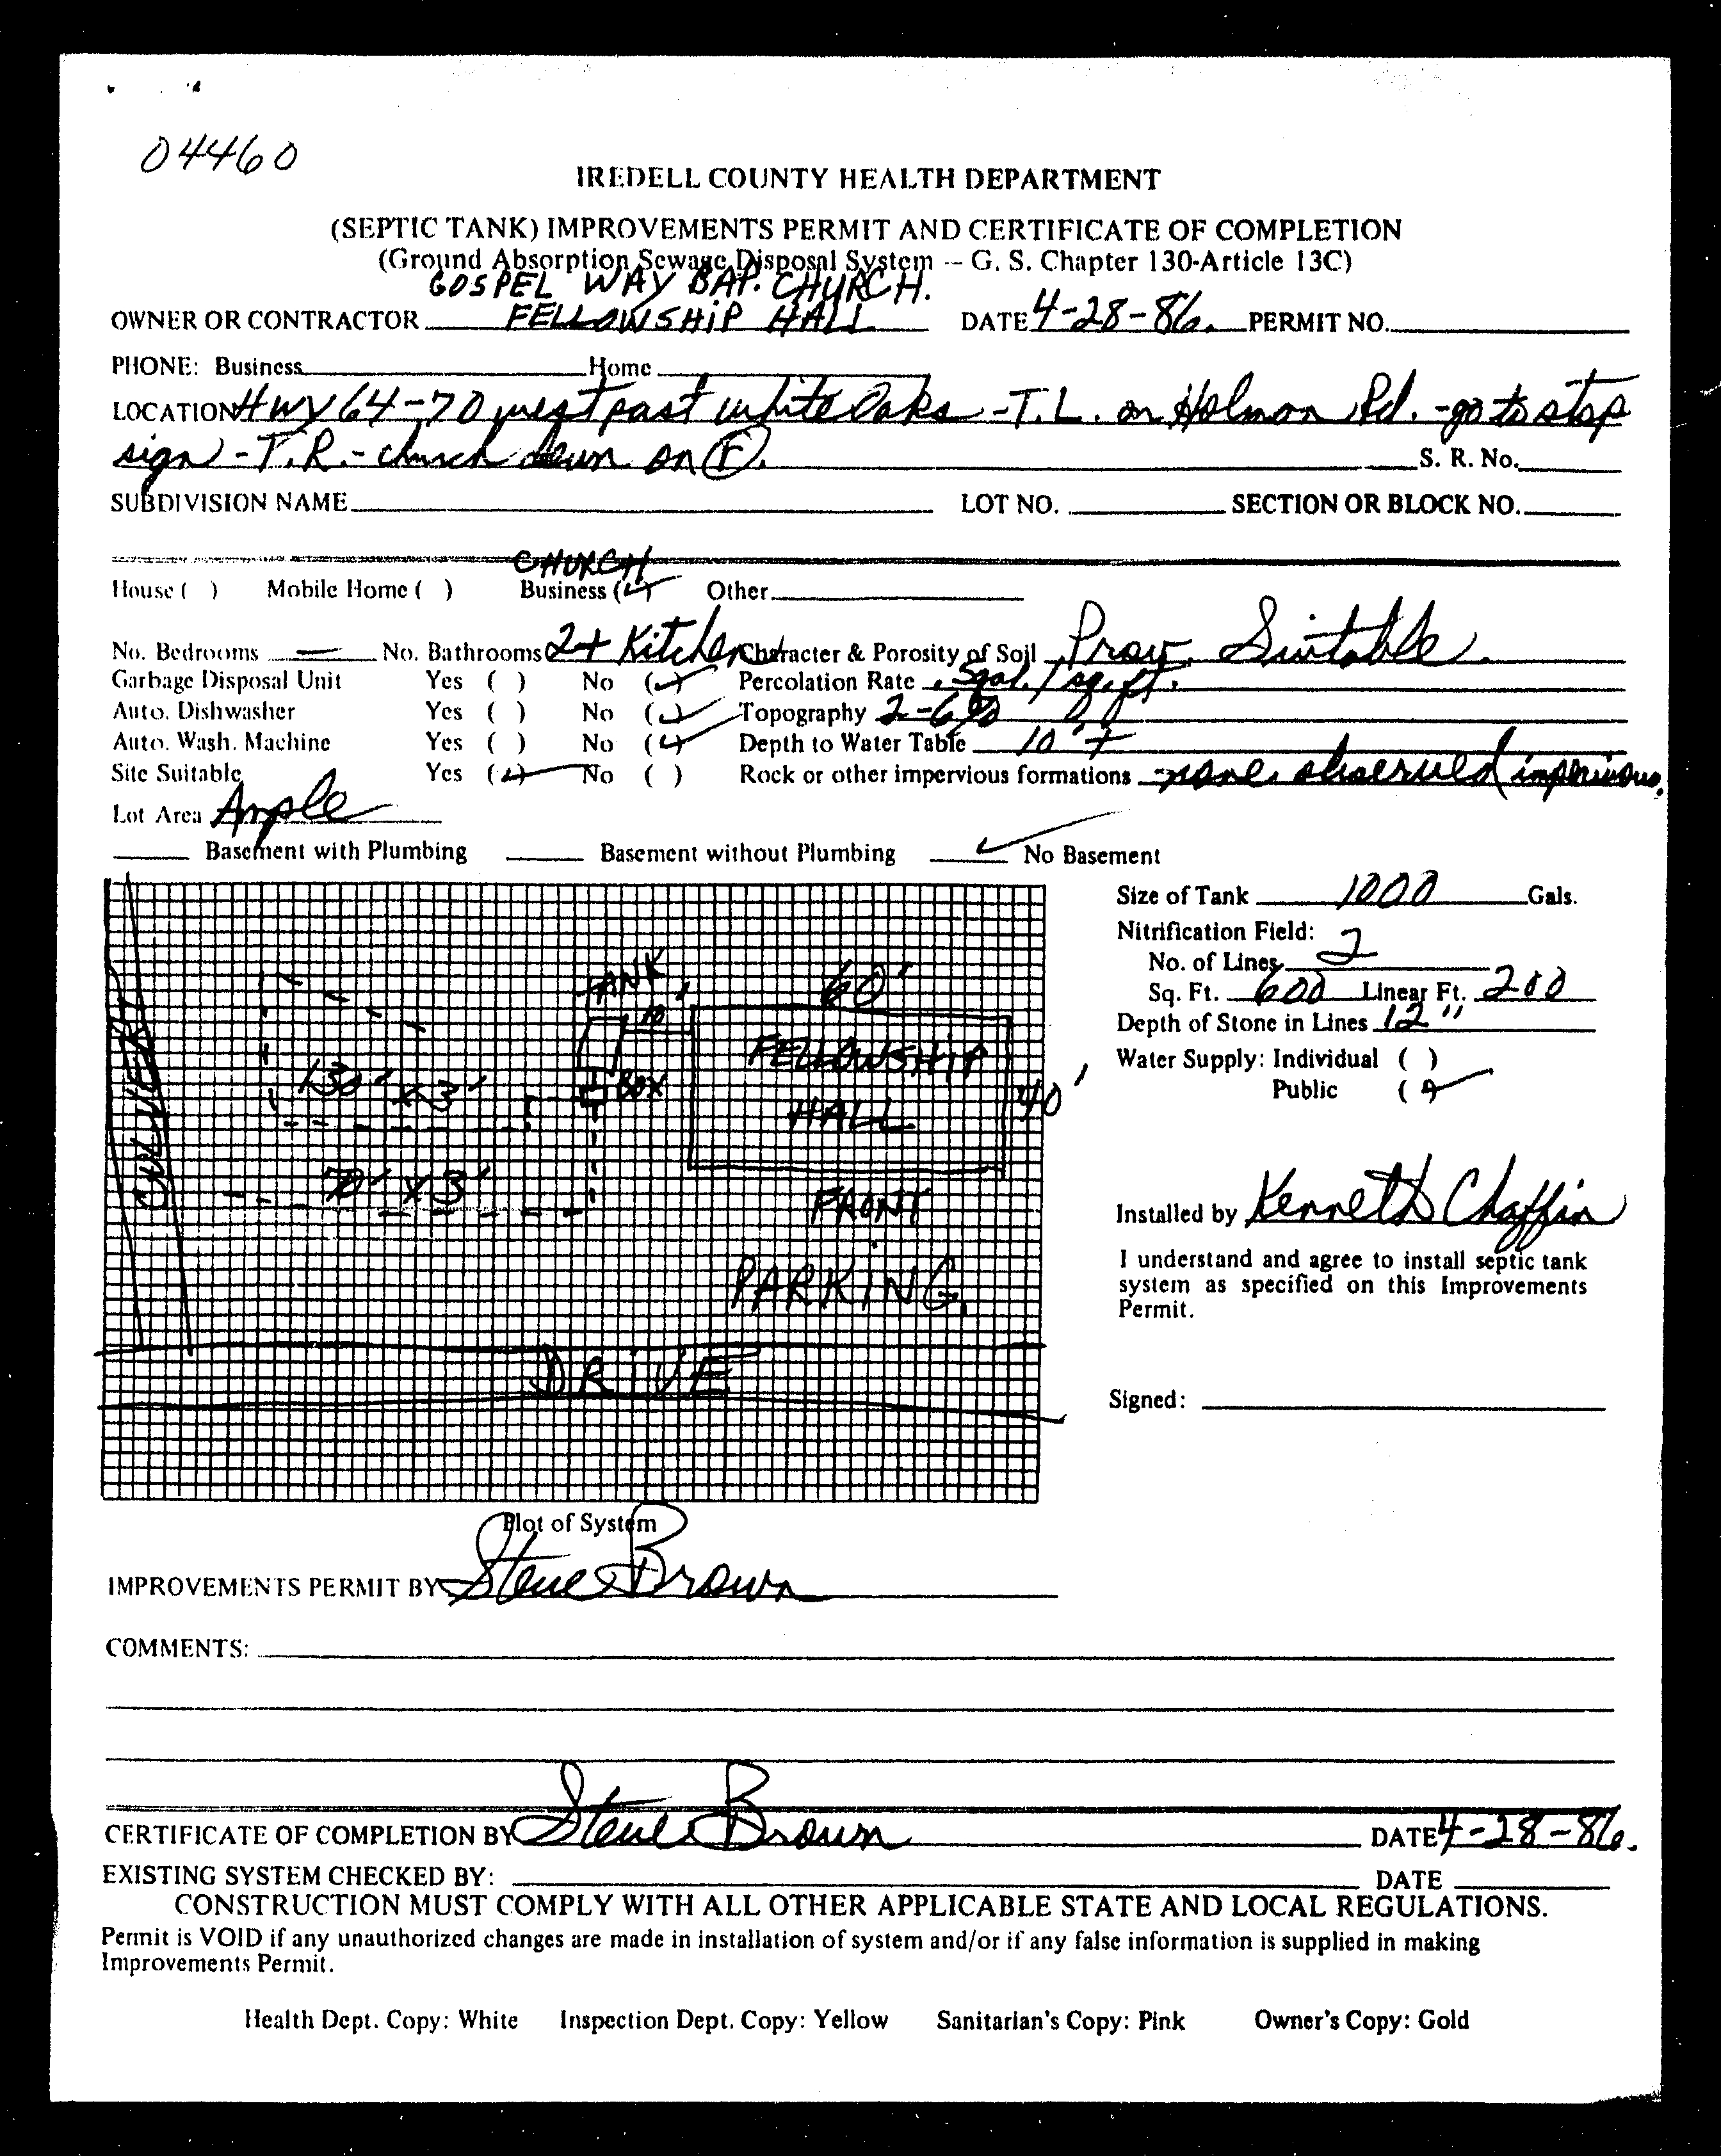 04460
IREDELL COUNTY HEALTH DEPARTMENT
(SEPTIC TANK) IMPROVEMENTS PERMIT AND CERTIFICATE OF COMPLETION
(Ground Absorption Sewage Disposal System -- G. S. Chapter 130-Article 13C)
GOSPEL WAY BAP. CHURCH.
OWNER OR CONTRACTOR FELLOWSHIP HALL DATE 4-28-86. PERMIT NO.
PHONE: Business Home
LOCATION Hwy 64-70 west past white Oaks - T.L. on Holmon Rd. - go to stop
sign - T.R. - church down on S. R. No.
SUBDIVISION NAME LOT NO. SECTION OR BLOCK NO.
CHURCH
House ( ) Mobile Home ( ) Business (✓) Other
No. Bedrooms — No. Bathrooms 2+ Kitchen Character & Porosity of Soil Prov. Suitable.
Garbage Disposal Unit Yes ( ) No (✓) Percolation Rate .5gal./sq.ft.
Auto. Dishwasher Yes ( ) No (✓) Topography 2-6%
Auto. Wash. Machine Yes ( ) No (✓) Depth to Water Table 10'+
Site Suitable Yes (✓) No ( ) Rock or other impervious formations none observed impervious.
Lot Area Ample
Basement with Plumbing Basement without Plumbing ✓ No Basement
Size of Tank 1000 Gals.
Nitrification Field:
No. of Lines 2
Sq. Ft. 600 Linear Ft. 200
Depth of Stone in Lines 12"
Water Supply: Individual ( )
Public (✓)
TANK
60'
10'
FELLOWSHIP
HALL
40'
BOX
130' x 3'
70' x 3'
CULVERT
FRONT
PARKING
DRIVE
Installed by Kenneth Chaffin
I understand and agree to install septic tank
system as specified on this Improvements
Permit.
Signed:
Plot of System
IMPROVEMENTS PERMIT BY Steve Brown
COMMENTS:
CERTIFICATE OF COMPLETION BY Steve Brown DATE 4-28-86.
EXISTING SYSTEM CHECKED BY: DATE
CONSTRUCTION MUST COMPLY WITH ALL OTHER APPLICABLE STATE AND LOCAL REGULATIONS.
Permit is VOID if any unauthorized changes are made in installation of system and/or if any false information is supplied in making
Improvements Permit.
Health Dept. Copy: White Inspection Dept. Copy: Yellow Sanitarian's Copy: Pink Owner's Copy: Gold